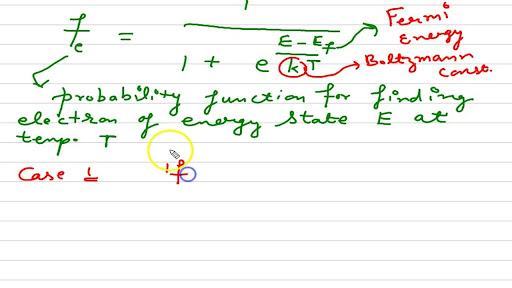 f_e = 1 / (1 + e^((E - E_f) / (kT)))
Fermi
Energy
Boltzmann
Const.
probability function for finding
electron of energy state E at
temp. T
Case 1 if